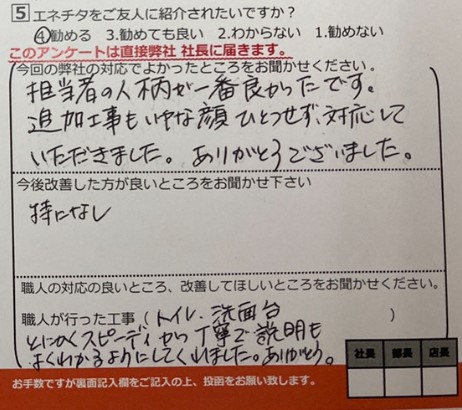 5 エネチタをご友人に紹介されたいですか?
④勧める 3.勧めても良い 2.わからない 1.勧めない
このアンケートは直接弊社 社長に届きます。
今回の弊社の対応でよかったところをお聞かせください。
担当者の人柄が一番良かったです。
追加工事もいやな顔ひとつせず、対応して
いただきました。ありがとうございました。
今後改善した方が良いところをお聞かせ下さい
特になし
職人の対応の良いところ、改善してほしいところをお聞かせください。
職人が行った工事(トイレ、洗面台 )
とにかくスピーディかつ丁寧で説明も
よくわかるようにしてくれました。ありがとう。
社長 部長 店長
お手数ですが裏面記入欄をご記入の上、投函をお願い致します。